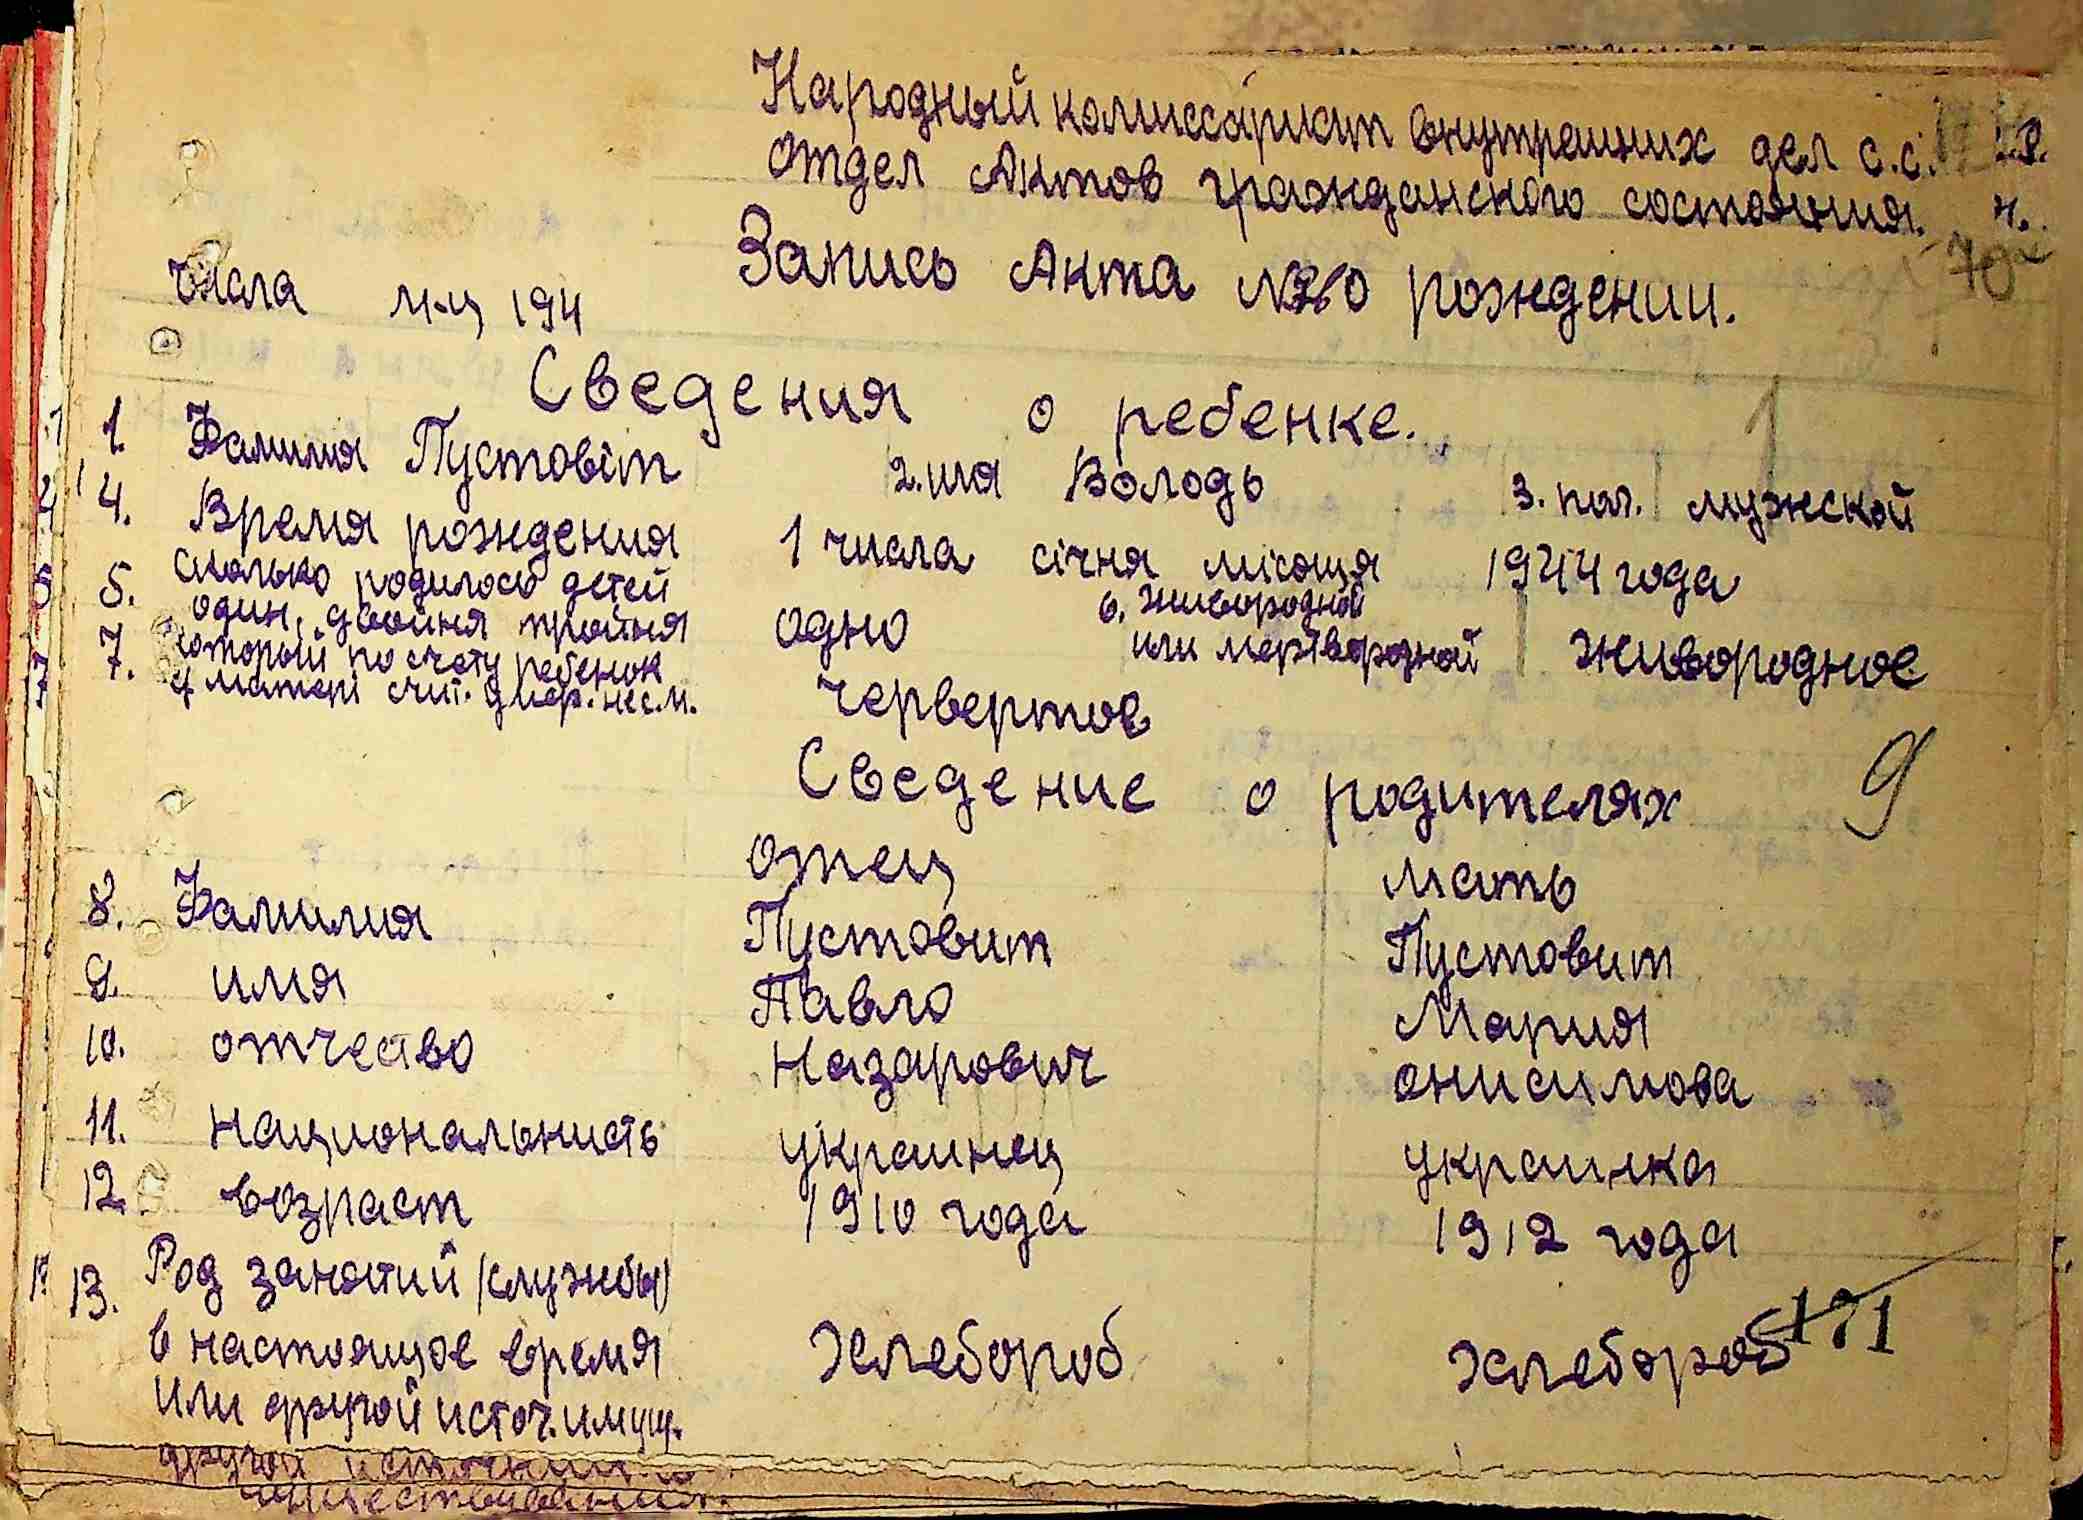 Народный комиссариат внутрених дел с.с. р.
отдел Актов гражданского состояния. н.
70
Запись Акта № о рождении.
числа м-ц 194
Сведения о ребенке.
1. Фамилия Пустовіт 2. имя Володь 3. пол. мужской
4. Время рождения 1 числа січня місяця 1944 года
5. Сколько родилось детей один, двойня тройня одно 6. живородной или мертвородной живородное
7. который по счету ребенок у матері счит. умер. нес.м. червертое
Сведение о родителях
9
отец мать
8. Фамилия Пустовит Пустовит
9. имя Павло Мария
10. отчество Назарович онисимова
11. национальнисть украинец украинка
12 возраст 1910 года 1912 года
13. Род занятий (службы)
в настоящое время хлебороб хлебороб
171
или другой источ. имущ.
другой